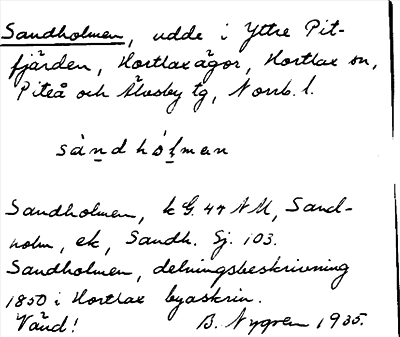 Sandholmen, udde i Yttre Pit-
fjärden, Hortlax ägor, Hortlax sn,
Piteå och Älvsby tg, Norrb. l.
sàndhólmen
Sandholmen, k G. 44 NM, Sand-
holm, ek, Sandh. Sj. 103.
Sandholmen, delningsbeskrivning
1850 i Hortlax byaskrin.
Vänd! B. Nygren 1935.